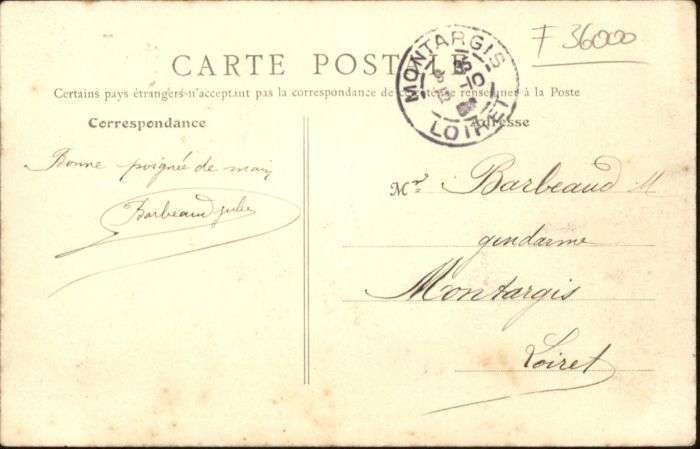 F 36000
CARTE POSTALE
Certains pays étrangers n'acceptant pas la correspondance de ce côté se renseigner à la Poste
Correspondance
Adresse
MONTARGIS
LOIRET
Bonne poignée de main
Barbeaud Jules
Mr. Barbeaud M
gendarme
Montargis
Loiret